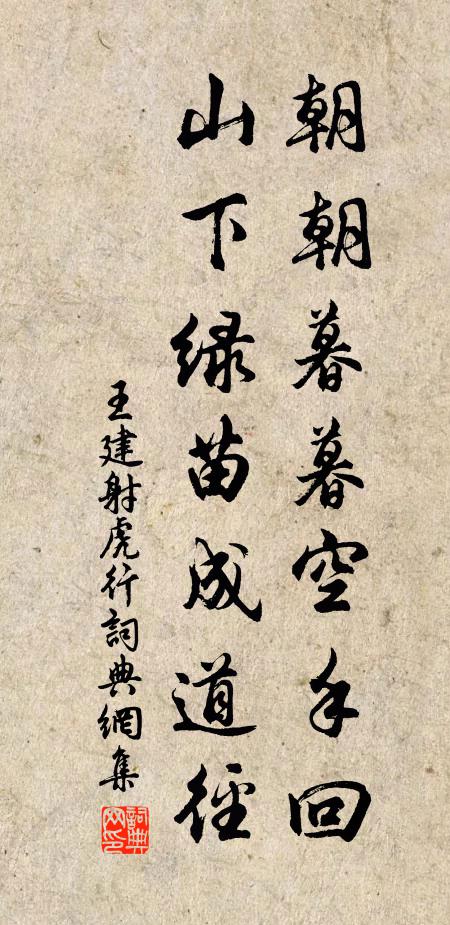 朝朝暮暮空手回
山下绿苗成道徑
王建射虎行詞典網集
詞典網印